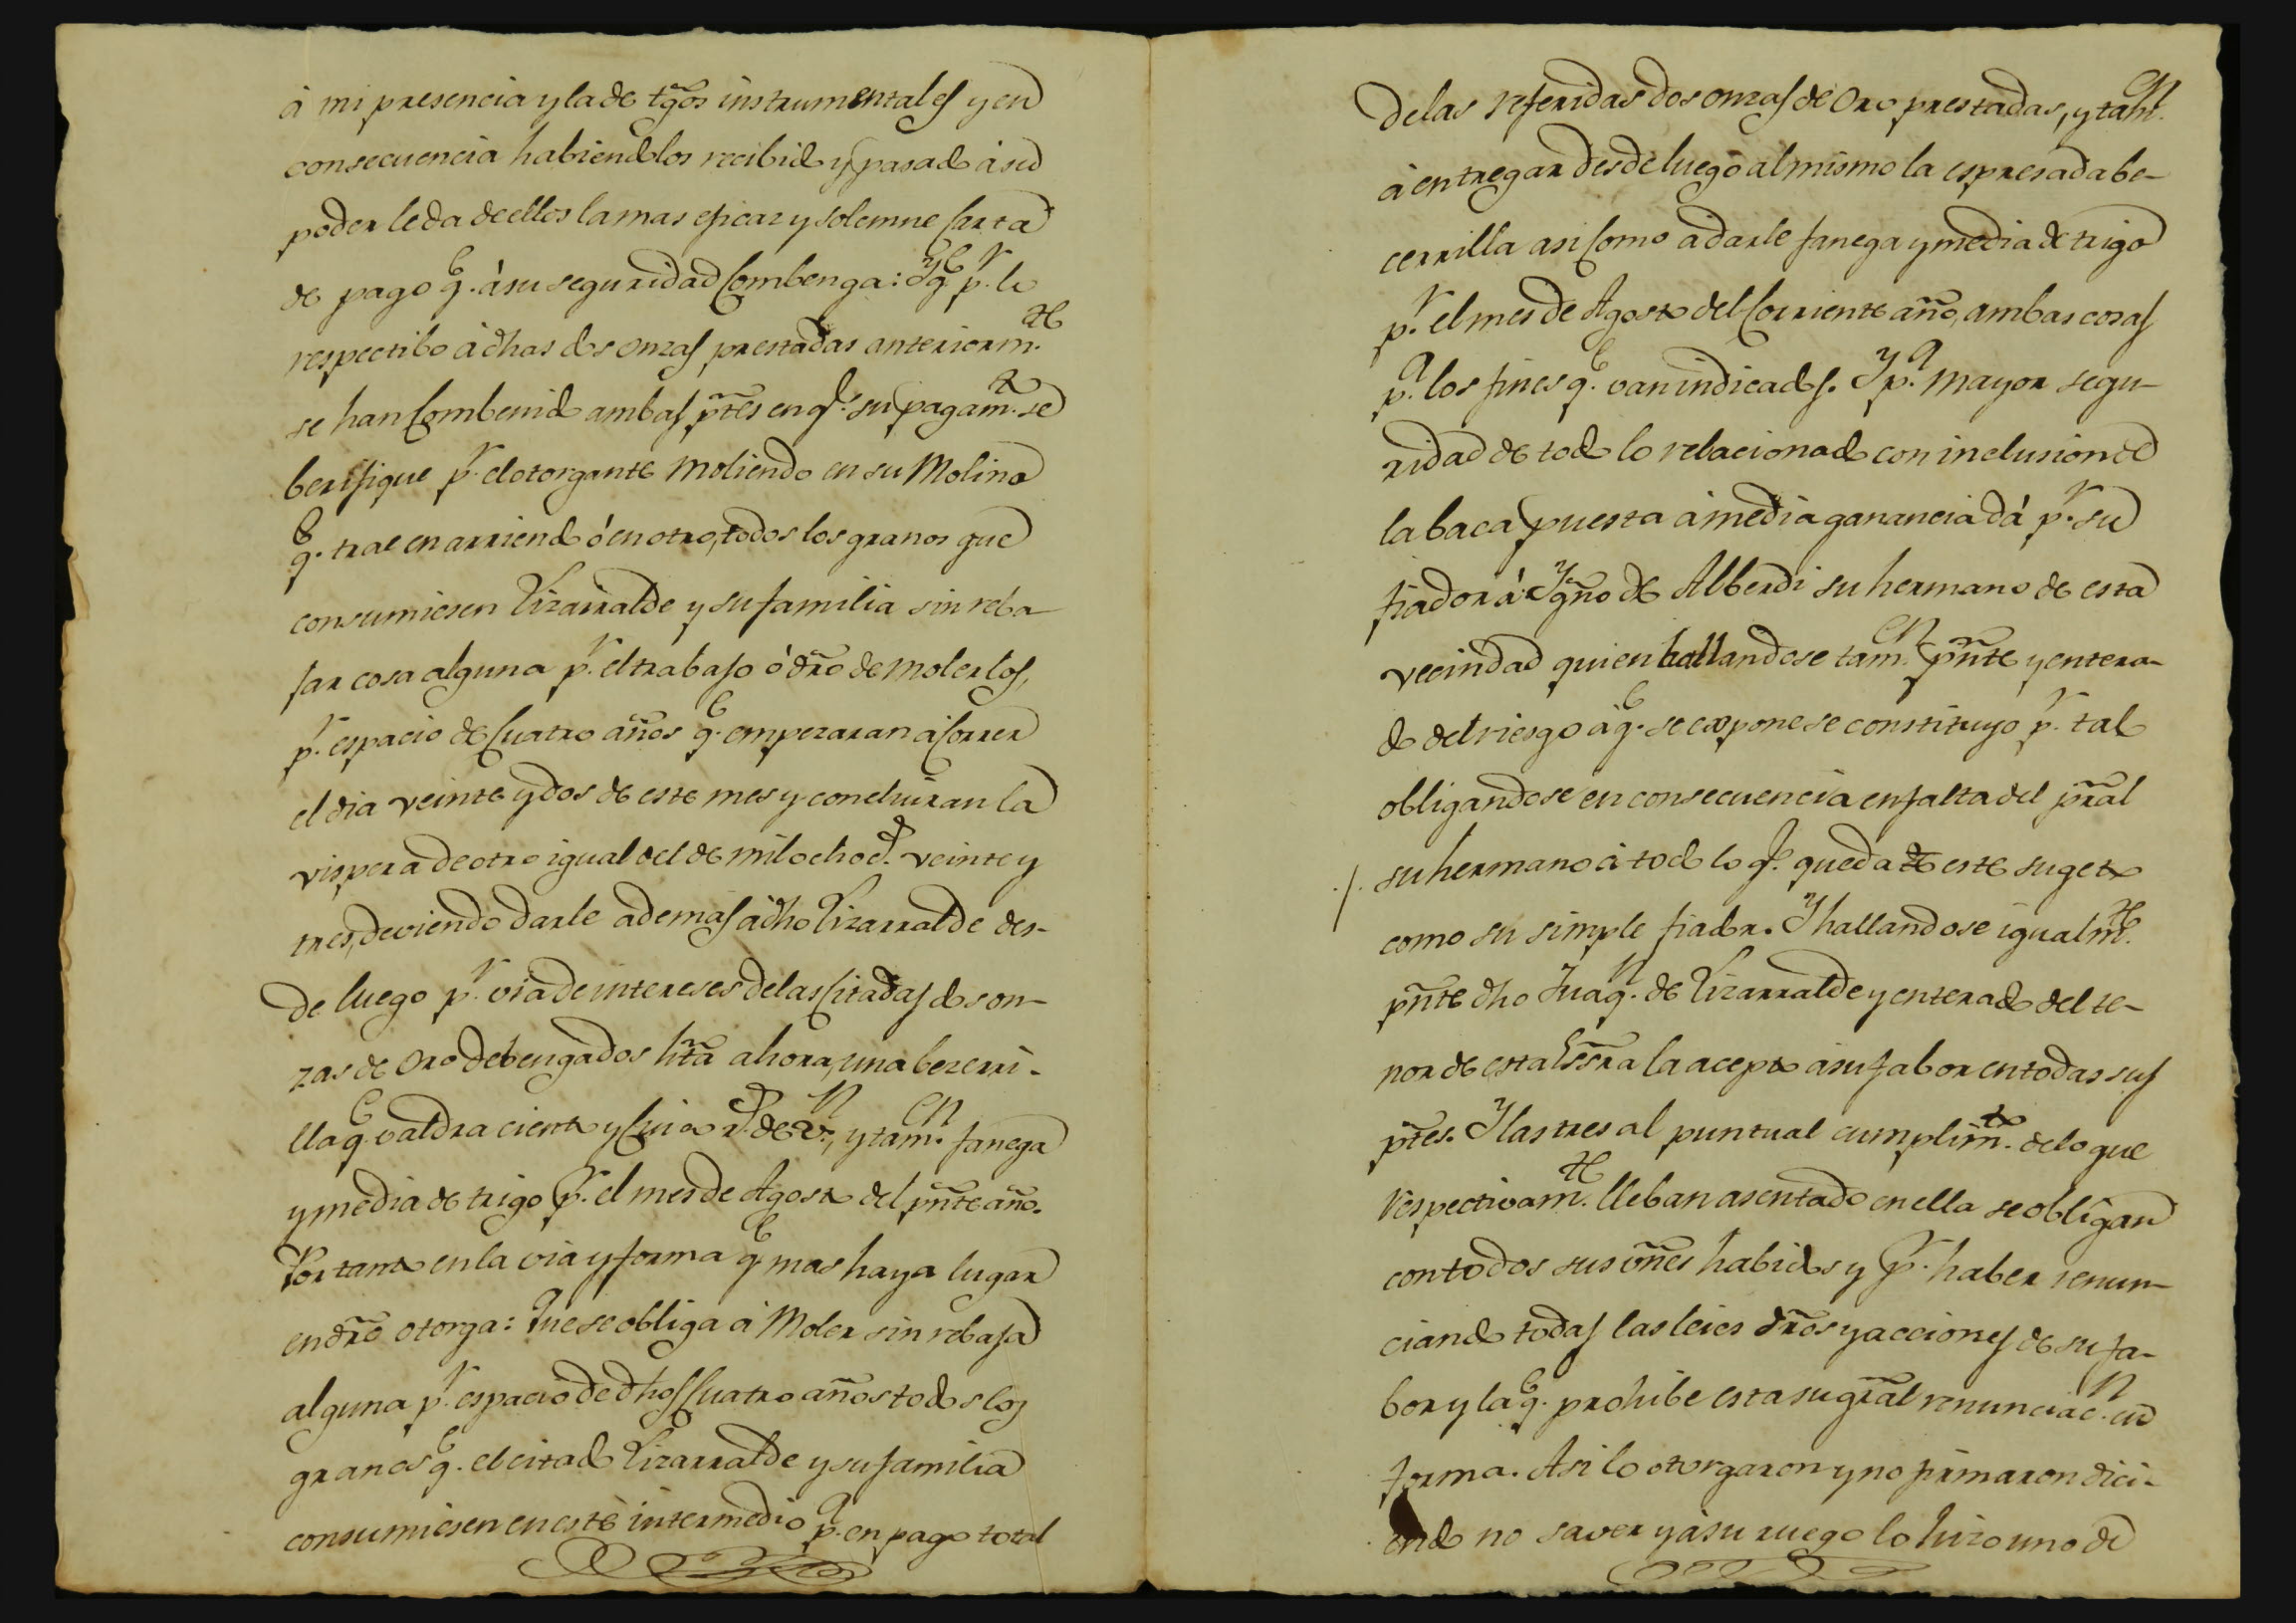 á mi presencia y la de tg̃os instrumentales y en
consecuencia habiendolos recibido y pasado á su
poder le da de ellos la mas eficaz y solemne Carta
de pago q.e á su seguridad Combenga: Y q.e p.r lo
respectibo á dhas dos onzas prestadas anteriorm.te
se han Combenido ambas p̃tes en q.e su pagam.to se
berifique p.r el otorgante moliendo en su Molino
q.e trae en arriendo ó en otro, todos los granos que
consumiesen Lizarralde y su familia sin reba-
jar cosa alguna p.r el trabajo ó dr̃o de molerlos,
p.r espacio de Cuatro años q.e empezaran á Correr
el dia veinte y dos de este mes y concluiran la
vispera de otro igual del de mil ochoc.s veinte y
tres, deviendo darle ademas á dho Lizarralde des-
de luego p.r via de intereses de las Citadas dos on-
zas de Oro debengados hr̃a ahora, una bezerri-
lla q.e valdra ciento y Cinco r.s de v.n, y tam.n fanega
y media de trigo p.r el mes de Agosto del pñte año.
Por tanto en la via y forma q.e mas haya lugar
en dr̃o otorga: Que se obliga á Moler sin rebaja
alguna p.r espacio de dhos Cuatro años todos los
granos q.e el citado Lizarralde y su familia
consumiesen en este intermedio p.a en pago total
de las referidas dos onzas de Oro prestadas, y tam.n
á entregar desde luego al mismo la espresada be-
cerrilla asi Como a darle fanega y media de trigo
p.r el mes de Agosto del Corriente año, ambas cosas
p.a los fines q.e van indicados. Y p.a mayor segu-
ridad de todo lo relacionado con inclusion de
la baca puesta á media ganancia dá p.r su
fiador á Ygño de Alberdi su hermano de esta
vecindad quien hallandose tam.n pñte y entera-
do del riesgo á q.e se expone se constituyo p.r tal
obligandose en consecuencia en falta del pr̃al
su hermano á todo lo q.e queda este sugeto
como su simple fiador. Y hallandose igualm.te
pñte dho Juaq.n de Lizarralde y enterado del te-
nor de esta Ess̃ra la acepto á su fabor en todas sus
p̃tes. Y las tres al puntual cumplim.to de lo que
respectivam.te lleban asentado en ella se obligan
con todos sus vñes habidos y p.r haber renun-
ciando todas las leies dr̃os y acciones de su fa-
bor y la q.e prohibe esta su gr̃al renunciac.n en
forma. Asi lo otorgaron y no firmaron dici-
endo no saver y á su ruego lo hizo uno de